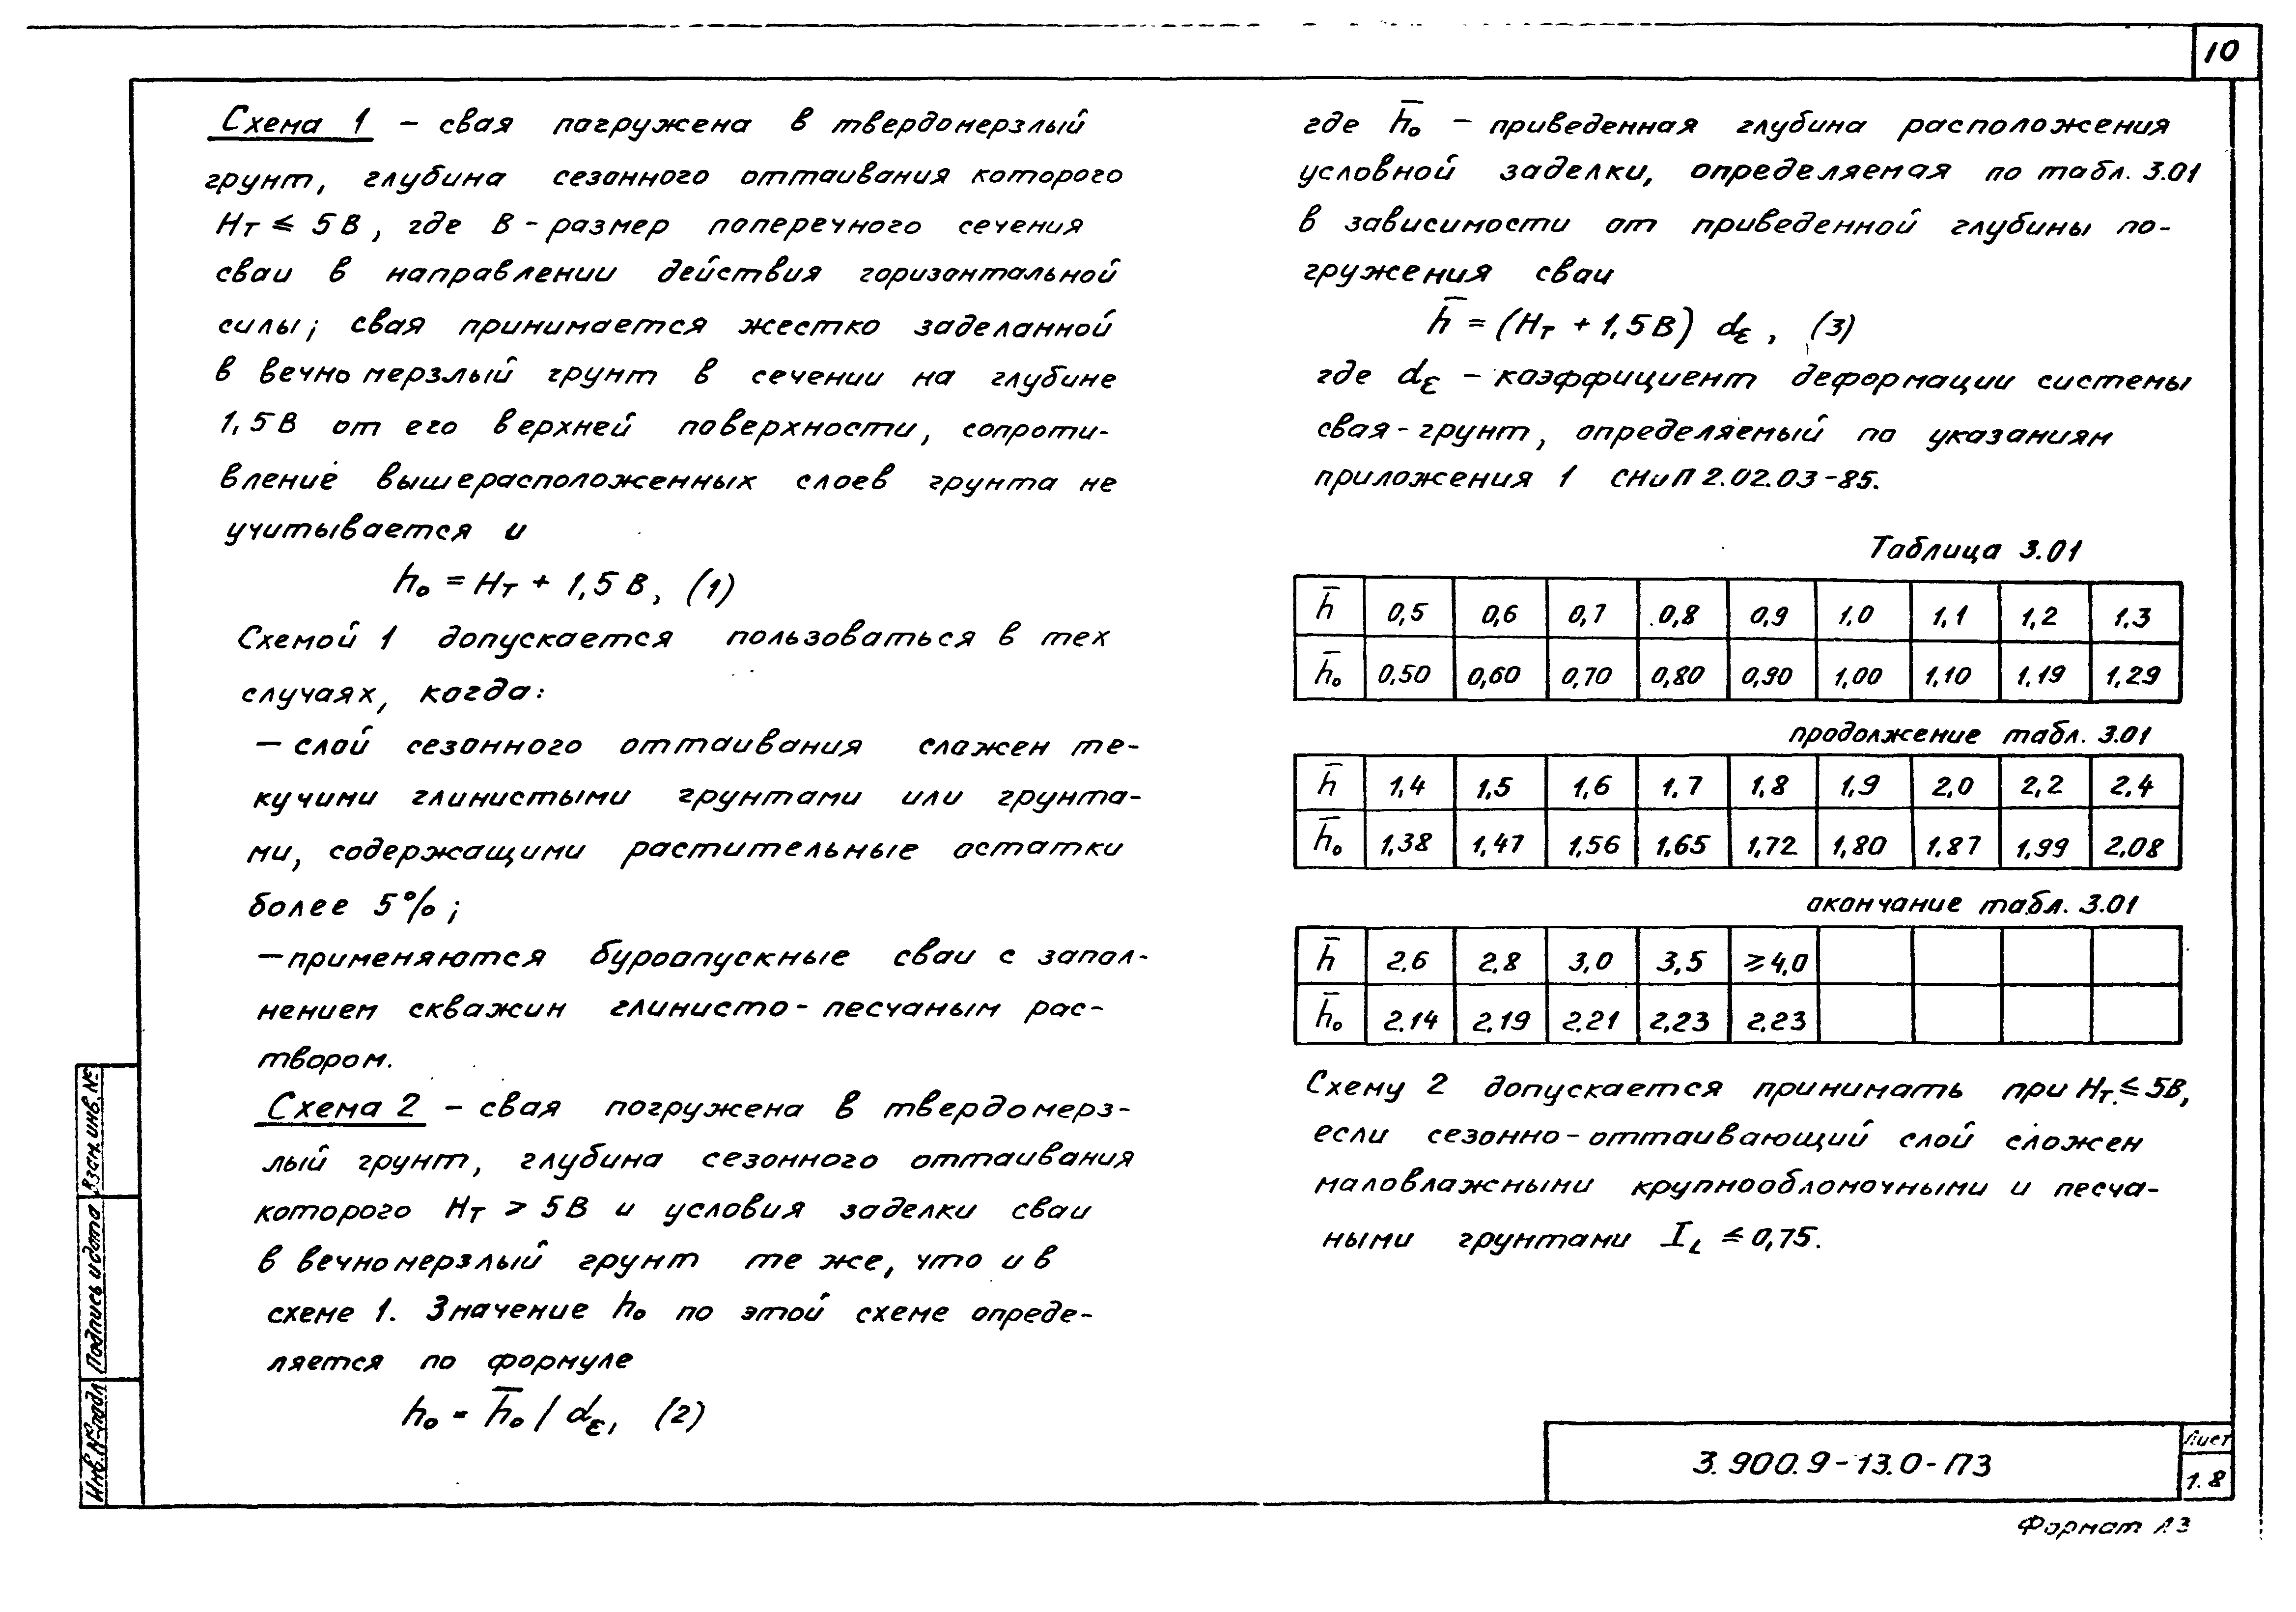 10
Схема 1 – свая погружена в твердомерзлый
грунт, глубина сезонного оттаивания которого
Hт ≤ 5В, где В – размер поперечного сечения
сваи в направлении действия горизонтальной
силы; свая принимается жестко заделанной
в вечномерзлый грунт в сечении на глубине
1,5В от его верхней поверхности, сопроти-
вление вышерасположенных слоев грунта не
учитывается и
h₀ = Hт + 1,5 В, (1)
Схемой 1 допускается пользоваться в тех
случаях, когда:
– слой сезонного оттаивания сложен те-
кучими глинистыми грунтами или грунта-
ми, содержащими растительные остатки
более 5%;
– применяются буроопускные сваи с запол-
нением скважин глинисто-песчаным рас-
твором.
Схема 2 – свая погружена в твердомерз-
лый грунт, глубина сезонного оттаивания
которого Hт > 5В и условия заделки сваи
в вечномерзлый грунт те же, что и в
схеме 1. Значение h₀ по этой схеме опреде-
ляется по формуле
h₀ = h̅₀ / dε, (2)
где h̅₀ – приведенная глубина расположения
условной заделки, определяемая по табл. 3.01
в зависимости от приведенной глубины по-
гружения сваи
h̅ = (Hт + 1,5В) dε, (3)
где dε – коэффициент деформации системы
свая-грунт, определяемый по указаниям
приложения 1 СНиП 2.02.03-85.
Таблица 3.01
h̅ 0,5 0,6 0,7 0,8 0,9 1.0 1,1 1,2 1.3
h̅₀ 0,50 0,60 0,70 0,80 0,90 1,00 1,10 1,19 1,29
продолжение табл. 3.01
h̅ 1,4 1,5 1,6 1,7 1,8 1,9 2,0 2,2 2,4
h̅₀ 1,38 1,47 1,56 1,65 1,72 1,80 1,87 1,99 2,08
окончание табл. 3.01
h̅ 2,6 2,8 3,0 3,5 ≥4,0
h̅₀ 2.14 2,19 2,21 2,23 2,23
Схему 2 допускается принимать при Hт ≤ 5В,
если сезонно-оттаивающий слой сложен
маловлажными крупнообломочными и песча-
ными грунтами I_L ≤ 0,75.
Взам. инв. №
Подпись и дата
Инв. № подл
3.900.9-13.0-ПЗ
Лист
1.8
Формат А3